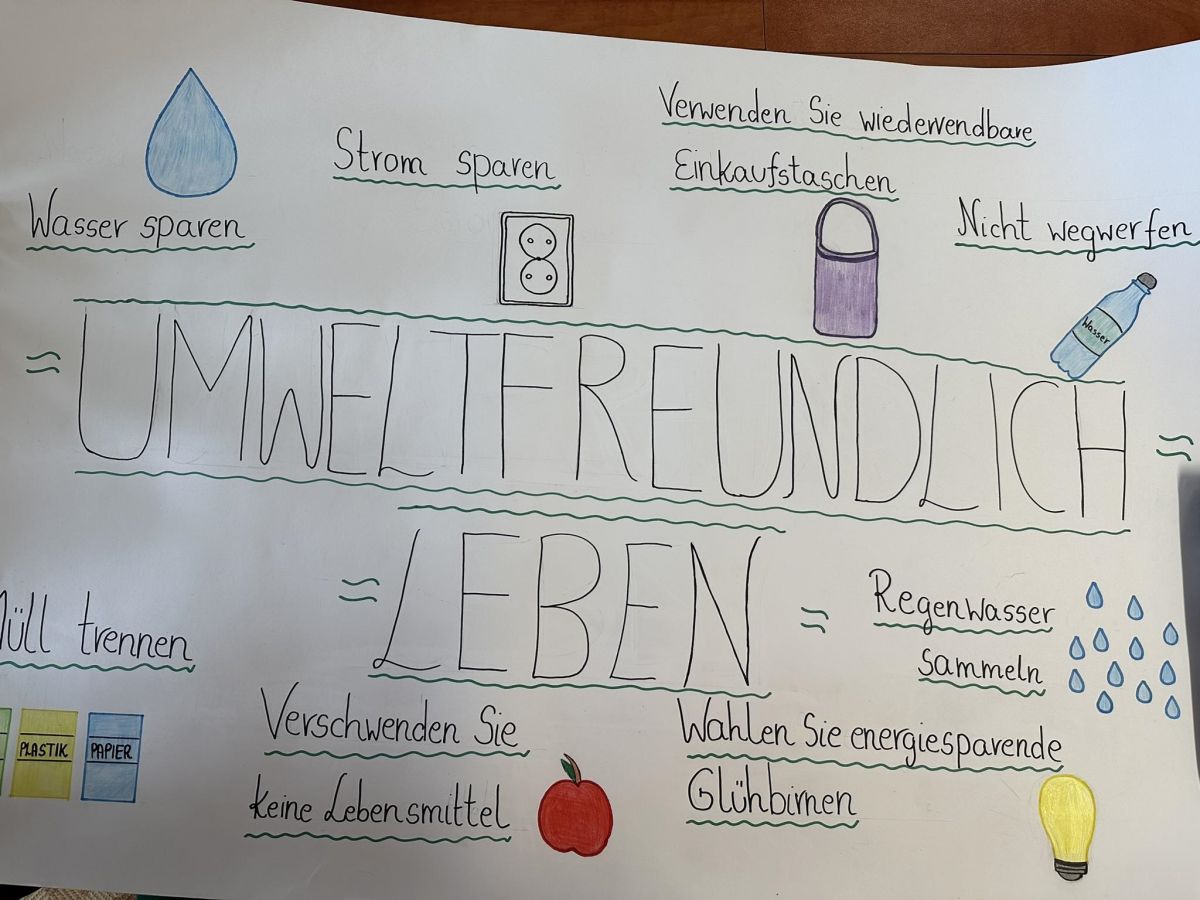 Wasser sparen
Strom sparen
Verwenden Sie wiederverndbare
Einkaufstaschen
Nicht wegwerfen
Wasser
UMWELTFREUNDLICH
LEBEN
Müll trennen
PLASTIK
PAPIER
Verschwenden Sie
keine Lebensmittel
Regenwasser
sammeln
Wahlen Sie energiesparende
Glühbirnen